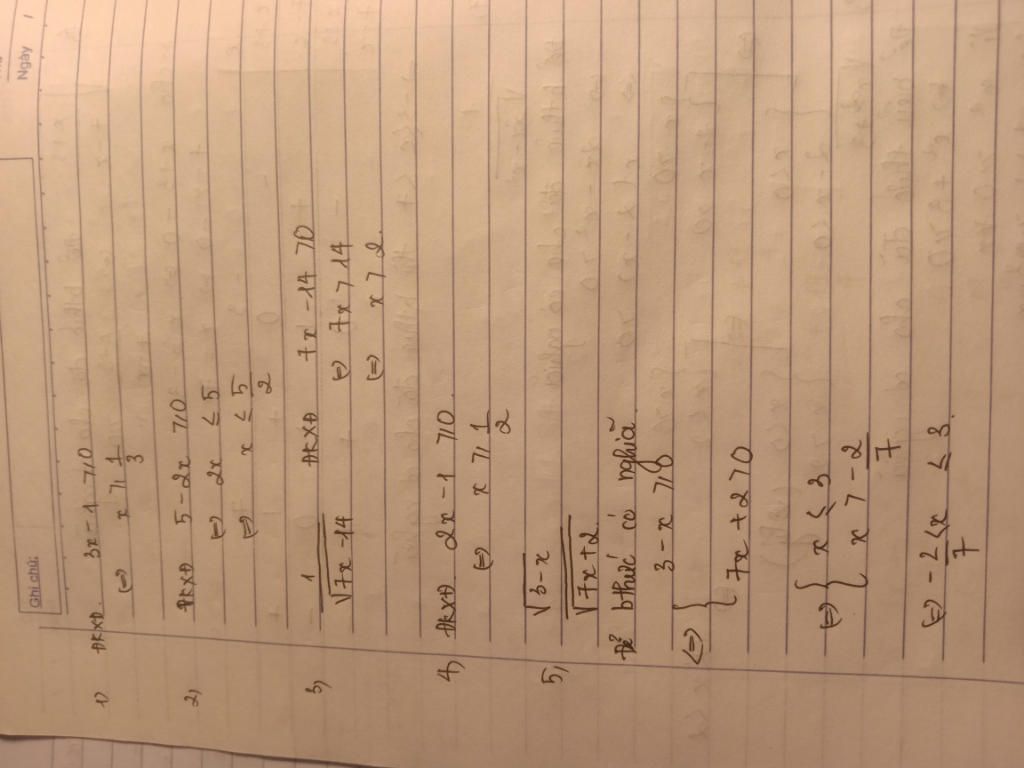 Ngày
Ghi chú:
1) ĐKXĐ. 3x - 1 ≥ 0
(=) x ≥ 1/3
2) ĐKXĐ 5 - 2x ≥ 0
(=) 2x ≤ 5
(=) x ≤ 5/2
3) 1/√(7x - 14) ĐKXĐ 7x - 14 > 0
(=) 7x > 14
(=) x > 2.
4) ĐKXĐ. 2x - 1 ≥ 0.
(=) x ≥ 1/2
5) √(3 - x)/√(7x + 2)
Để bthức có nghĩa
(=) { 3 - x ≥ 0
7x + 2 > 0
(=) { x ≤ 3
x > -2/7
(=) -2/7 < x ≤ 3.